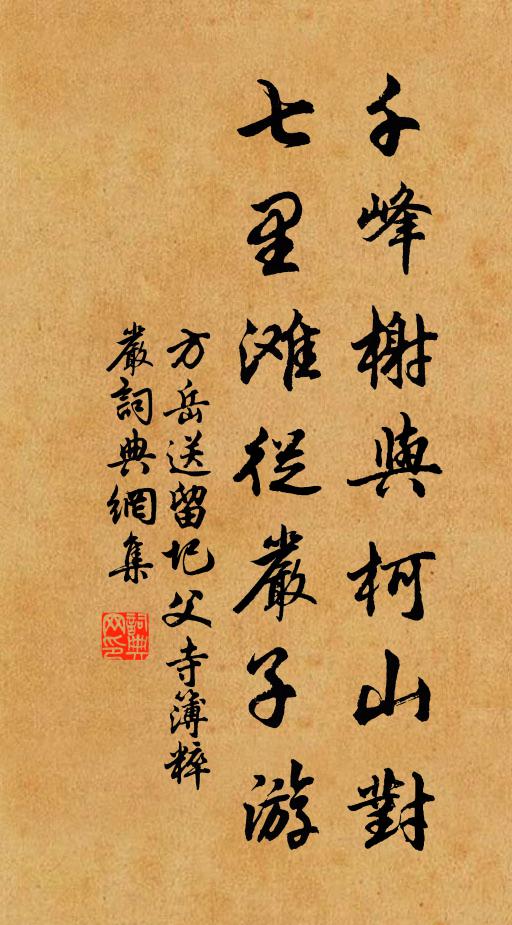 千峰榭與柯山對
七里滩從嚴子游
方岳送留圯父寺簿粹
嚴詞典網集
詞典網印